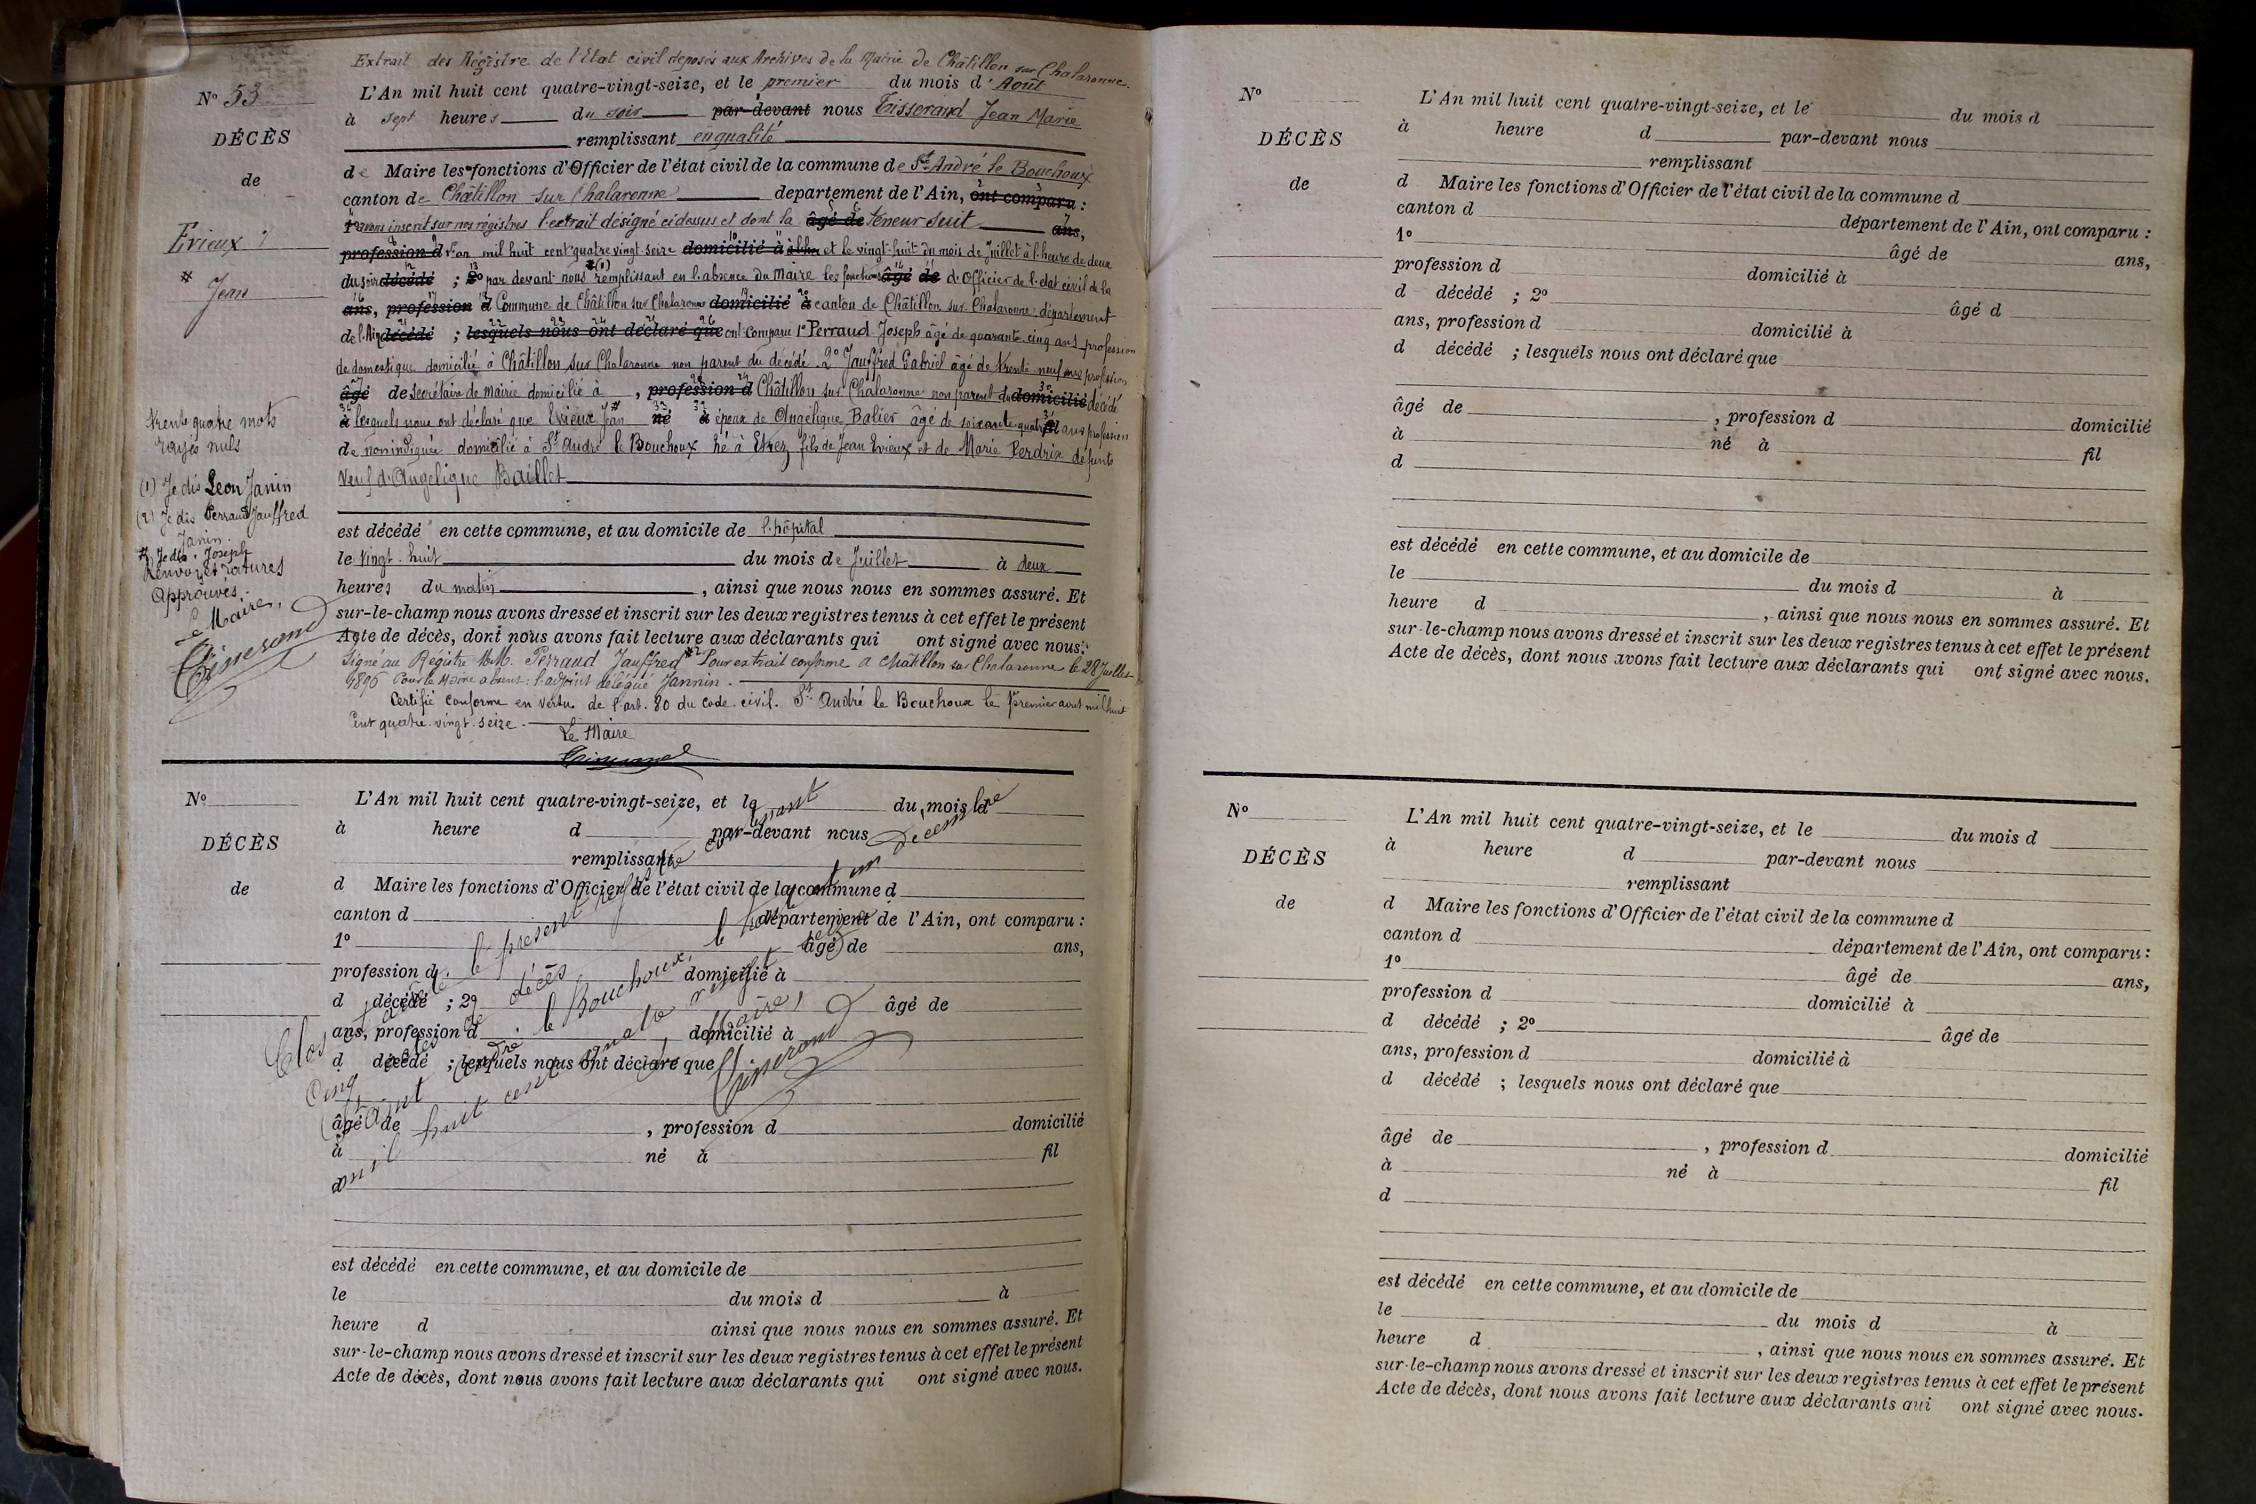 Extrait des Régistre de l'Etat civil deposés aux Archives de la Mairie de Châtillon sur Chalaronne.
N° 53
L'An mil huit cent quatre-vingt-seize, et le premier du mois d'Août
à sept heures du soir par-devant nous Tisserand Jean Marie
DÉCÈS
remplissant en qualité
de
de Maire les fonctions d'Officier de l'état civil de la commune de St André le Bouchoux
canton de Châtillon sur Chalaronne département de l'Ain, ont comparu :
Erieux
1° avons inscrit sur nos régistres l'extrait désigné ci dessus et dont la âgé de teneur suit ans,
profession d L'an mil huit cent quatre vingt seize domicilié à et le vingt-huit du mois de Juillet à l'heure de deux
* Jean
du soir décédé ; 2° par devant nous (1) remplissant en l'absence du Maire les fonctions âgé de d'Officier de l'état civil de la
ans, profession d Commune de Châtillon sur Chalaronne domicilié à canton de Châtillon sur Chalaronne département
de l'Ain décédé ; lesquels nous ont déclaré que ont comparu 1° Perraud Joseph âgé de quarante cinq ans profession
de domestique domicilié à Châtillon sur Chalaronne non parent du décédé 2° Jauffred Gabriel âgé de trente neuf ans profession
âgé de secrétaire de mairie domicilié à , profession d Châtillon sur Chalaronne non parent du domicilié décédé
à lesquels nous ont déclaré que Erieux Jean né à époux de Angélique Balier âgé de soixante quatre fil ans profession
de non indiquée domicilié à St André le Bouchoux né à Etrez fils de Jean Erieux et de Marie Perdrix défunts
Veuf d'Angélique Baillet
Trente quatre mots
rayés nuls
(1) Je dis Leon Janin
(2) Je dis Perraud Jauffred
Janin.
# Je dis. Joseph
Renvoi et ratures
Approuvés.
Le Maire,
Tisserand
est décédé en cette commune, et au domicile de l'hôpital
le vingt-huit du mois de Juillet à deux
heures du matin , ainsi que nous nous en sommes assuré. Et
sur-le-champ nous avons dressé et inscrit sur les deux registres tenus à cet effet le présent
Acte de décès, dont nous avons fait lecture aux déclarants qui ont signé avec nous.
Signé au Régistre M.M. Perraud Jauffred #2 Pour extrait conforme a Châtillon sur Chalaronne le 28 Juillet
1896 Pour le Maire absent: l'adjoint délégué Jannin.
Certifié conforme en vertu de l'art. 80 du code civil. St André le Bouchoux le premier août mil huit
cent quatre-vingt-seize.
Le Maire
Tisserand
N°
L'An mil huit cent quatre-vingt-seize, et le du mois d
à heure d par-devant nous
DÉCÈS
remplissant
de
d Maire les fonctions d'Officier de l'état civil de la commune d
canton d département de l'Ain, ont comparu :
1° âgé de ans,
profession d domicilié à
d décédé ; 2° âgé de
ans, profession d domicilié à
d décédé ; lesquels nous ont déclaré que
âgé de , profession d domicilié
à né à fil
d
Clos le présent
décès
le Bouchoux, le
mil huit cent
Maire,
Tisserand
est décédé en cette commune, et au domicile de
le du mois d à
heure d ainsi que nous nous en sommes assuré. Et
sur-le-champ nous avons dressé et inscrit sur les deux registres tenus à cet effet le présent
Acte de décès, dont nous avons fait lecture aux déclarants qui ont signé avec nous.
N°
L'An mil huit cent quatre-vingt-seize, et le du mois d
à heure d par-devant nous
DÉCÈS
remplissant
de
d Maire les fonctions d'Officier de l'état civil de la commune d
canton d département de l'Ain, ont comparu :
1° âgé de ans,
profession d domicilié à
d décédé ; 2° âgé d
ans, profession d domicilié à
d décédé ; lesquels nous ont déclaré que
âgé de , profession d domicilié
à né à fil
d
est décédé en cette commune, et au domicile de
le du mois d à
heure d , ainsi que nous nous en sommes assuré. Et
sur-le-champ nous avons dressé et inscrit sur les deux registres tenus à cet effet le présent
Acte de décès, dont nous avons fait lecture aux déclarants qui ont signé avec nous.
N°
L'An mil huit cent quatre-vingt-seize, et le du mois d
à heure d par-devant nous
DÉCÈS
remplissant
de
d Maire les fonctions d'Officier de l'état civil de la commune d
canton d département de l'Ain, ont comparu :
1° âgé de ans,
profession d domicilié à
d décédé ; 2° âgé de
ans, profession d domicilié à
d décédé ; lesquels nous ont déclaré que
âgé de , profession d domicilié
à né à fil
d
est décédé en cette commune, et au domicile de
le du mois d à
heure d , ainsi que nous nous en sommes assuré. Et
sur-le-champ nous avons dressé et inscrit sur les deux registres tenus à cet effet le présent
Acte de décès, dont nous avons fait lecture aux déclarants qui ont signé avec nous.